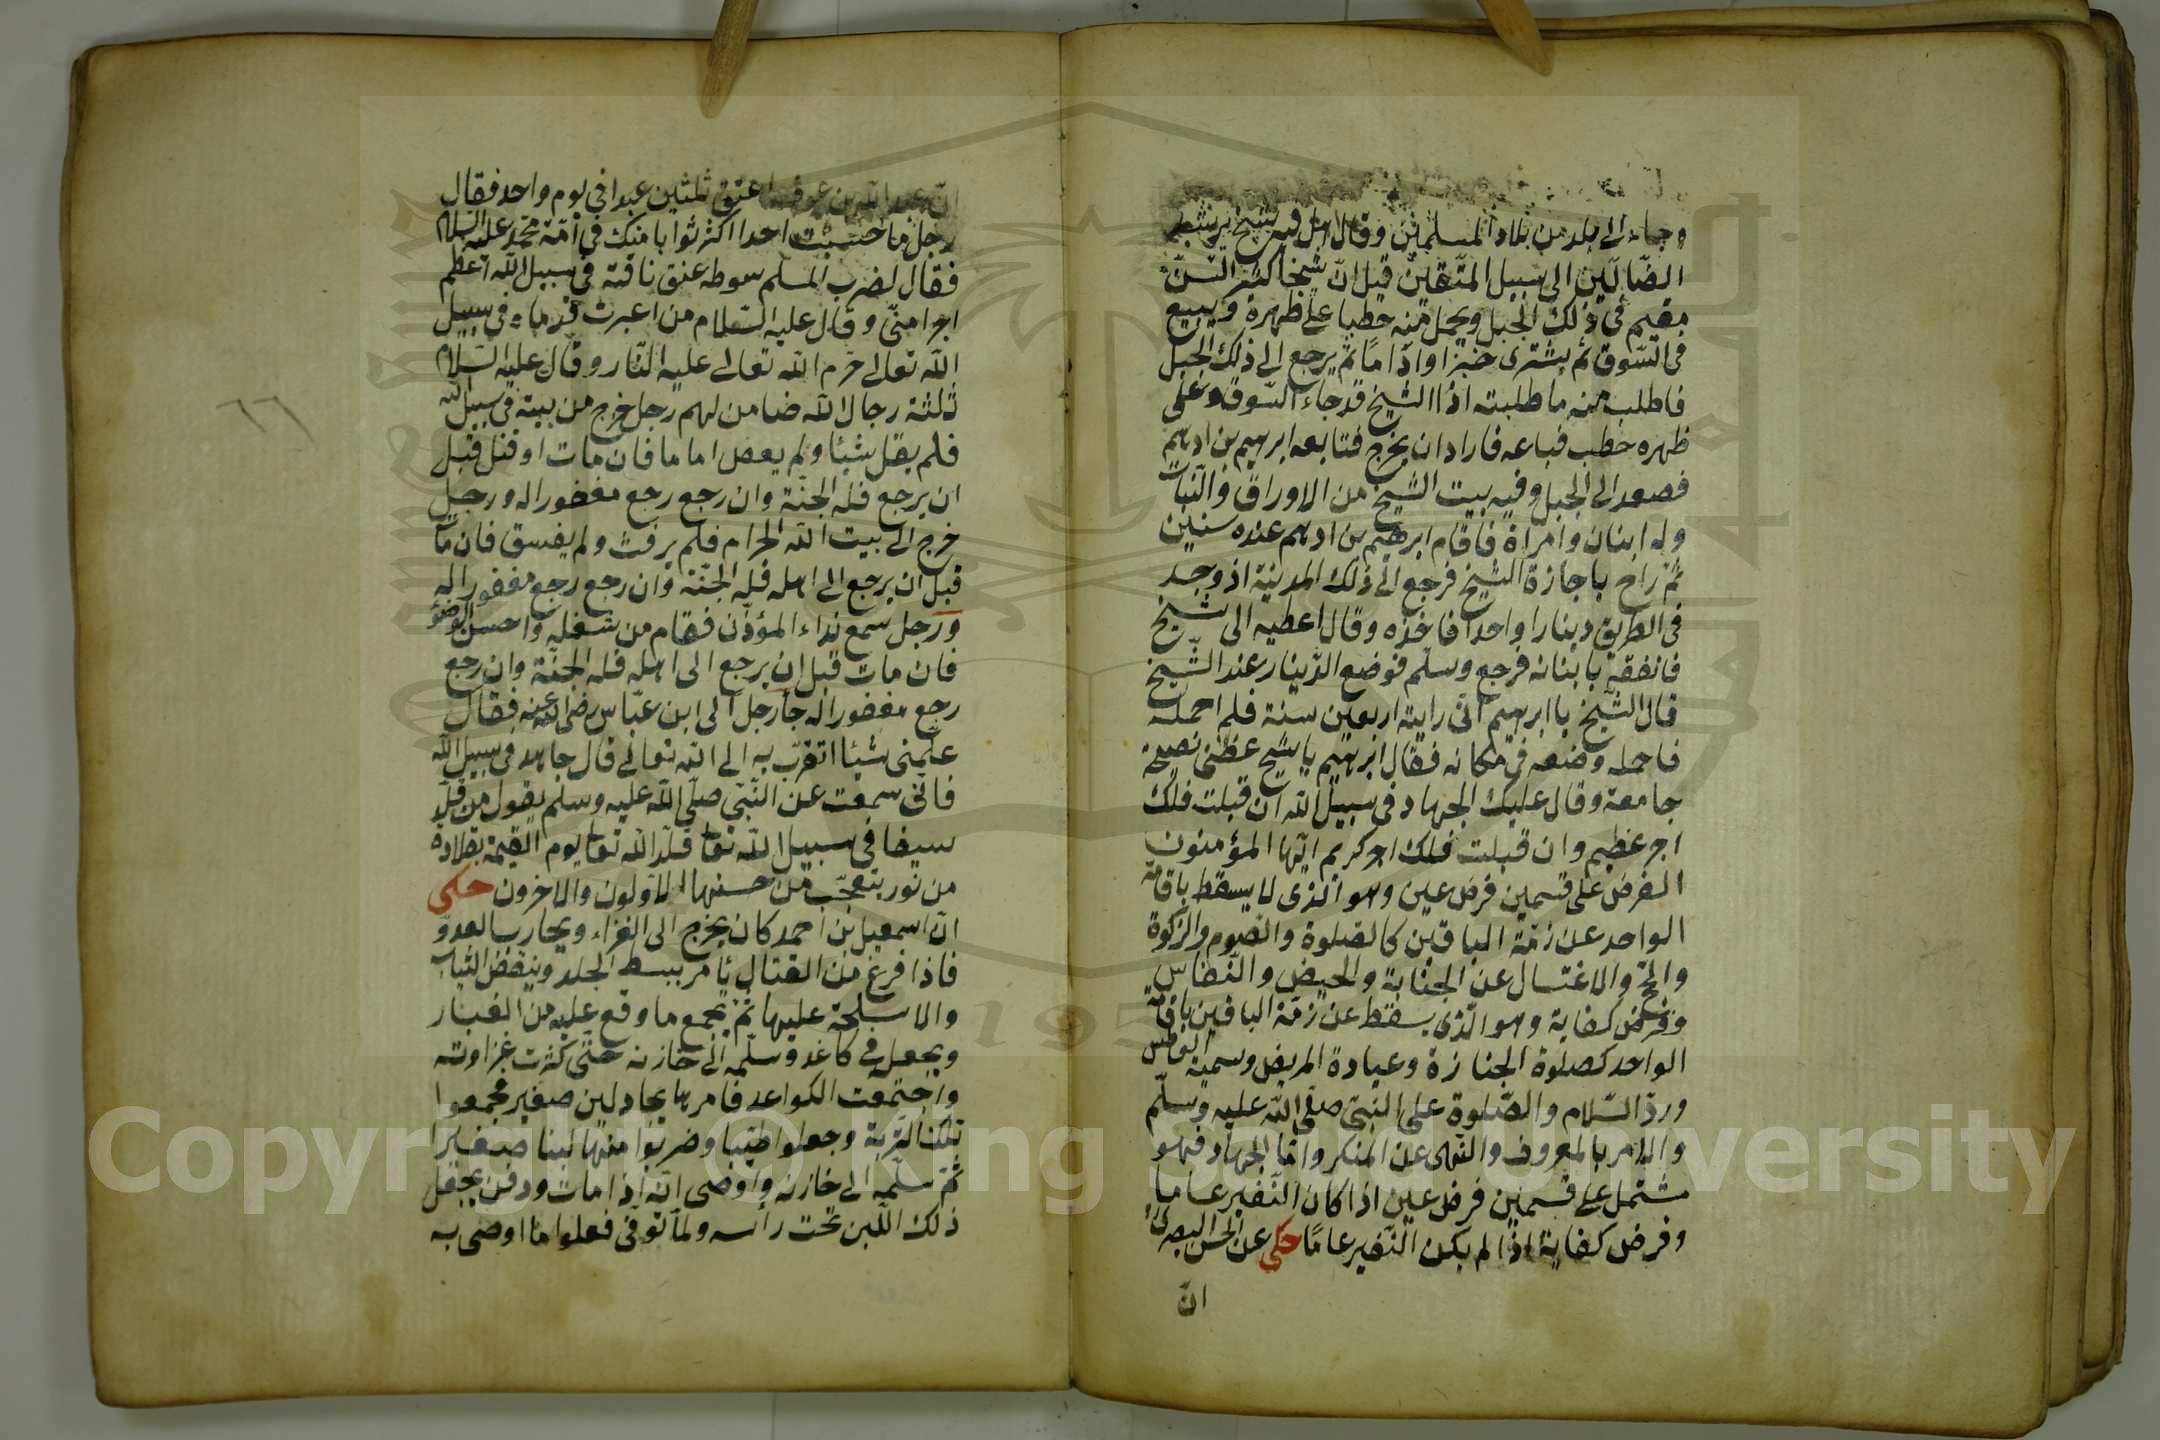 وجاء الى بلد من بلاد المسلمين وقال اهل فيه شيخ يرشد
الضّالّين الى سبيل المتّقين قيل انّ شيخا كثير السّنّ
مقيم فى ذلك الجبل ويحمل منه حطبا على ظهره ويبيع
فى السّوق ثم يشترى خبزا واداما ثم يرجع الى ذلك الجبل
فاطلب منه ما طلبته اذا الشيخ قد جاء السّوق وعلى
ظهره حطب فباعه فاراد ان يخرج فتابعه ابرهيم بن ادهم
فصعد الى الجبل وفيه بيت الشيخ من الاوراق والنّبات
وله ابنان وامراة فاقام ابرهيم بن ادهم عنده سنين
ثمّ راح باجازة الشيخ فرجع الى ذلك المدينة اذ وجد
فى الطريق دينارا واحدا فاخذه وقال اعطيه الى شيخ
فانفقه بابنانه فرجع وسلّم فوضع الدّينار عند الشّيخ
قال الشّيخ يا ابرهيم انّى رايته اربعين سنة فلم احمله
فاحمله وضعه فى مكانه فقال ابرهيم يا شيخ عظنى نصيحة
جامعة وقال عليك الجهاد فى سبيل الله ان قبلت فلك
اجر عظيم وان قبلت فلك اجر كريم ايّها المؤمنون
الفرض على قسمين فرض عين وهو الّذى لا يسقط باقامة
الواحد عن زمّة الباقين كالصلوة والصوم والزكوة
والحجّ والاغتسال عن الجنابة والحيض والنّفاس
وفرض كفاية وهو الّذى يسقط عن زمّة الباقين باقامة
الواحد كصلوة الجنازة وعيادة المريض وسمية العاطس
وردّ السّلام والصّلوة على النبىّ صلّى الله عليه وسلّم
والامر بالمعروف والنّهى عن المنكر وامّا الجهاد فهو
مشتمل على قسمين فرض عين اذا كان النّفير عاما
وفرض كفاية اذا لم يكن النّفير عامّا حكى عن الحسن البصرى
انّ
انّ عبد الله بن عوف اعتق ثلثين عبدا فى يوم واحد فقال
رجل ما حسبت احدا اكثر ثوابا منك فى امّة محمّد عليه السّلام
فقال لضرب المسلم سوطه عنق ناقته فى سبيل الله اعظم
اجرا منّى وقال عليه السّلام من اعبرت قدماه فى سبيل
الله تعالى حرّم الله تعالى عليه النّار وقال عليه السّلام
ثلثة رجال الله ضامن لهم رجل خرج من بيته فى سبيل الله
فلم يقل شيئا ولم يعص اماما فان مات او قتل قبل
ان يرجع فله الجنّة وان رجع رجع مغفورا له ورجل
خرج الى بيت الله الحرام فلم يرفث ولم يفسق فان مات
قبل ان يرجع الى اهله فله الجنّة وان رجع رجع مغفورا له
ورجل سمع نداء المؤذّن فقام من شغله واحسن الوضوء
فان مات قبل ان يرجع الى اهله فله الجنّة وان رجع
رجع مغفورا له جاء رجل الى ابن عبّاس رضى الله عنه فقال
علّمنى شيئا اتقرّب به الى الله تعالى قال جاهد فى سبيل الله
فانّى سمعت عن النّبىّ صلّى الله عليه وسلّم يقول من قلّد
سيفا فى سبيل الله تعا قلّد الله تعا يوم القيمة بقلادة
من نور يتعجّب من حسنها الاوّلون والاخرون حكى
انّ اسمعيل بن احمد كان يخرج الى الغزاء ويحارب العدوّ
فاذا فرغ من القتال يامر ببسط الجلد وينفض الثياب
والاسلحة عليها ثمّ يجمع ما وقع عليه من الغبار
ويجعل فى كاغد وسلّمه الى خازنه حتّى كثرت غزاوته
واجتمعت الكواعد فامرها يجاد لبن صغير فجمعوا
تلك التّربة وجعلوا طينا وضربوا منها لبنا صغيرا
ثمّ سلّمه الى خازنه واوصى انّه اذا مات ودفن يجعل
ذلك اللّبن تحت رأسه ولمّا توفّى فعلوا ما اوصى به
٦٦
Copyright © King Saud University
1957